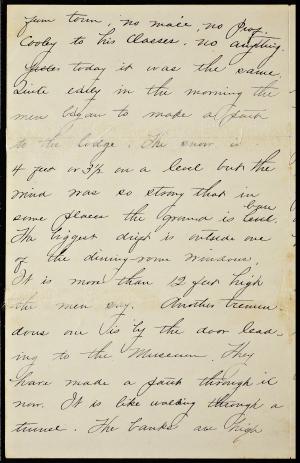 from town, no mail, no Prof.
Cooley to his classes. no anything.
today it was the same.
Quite early in the morning the
men began to make a path
to the lodge. The snow is
4 feet or 3½ on a level but the
wind was so strong that in
some places the ground is bare
The biggest drift is outside one
of the dining-room windows,
It is more than 12 feet high
the men say. Another tremen
dous one is by the door lead-
ing to the Museum. They
have made a path through it
now. It is like walking through a
tunnel. The banks are high